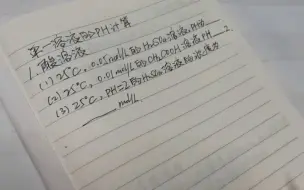 第一 溶液的PH计算
1.酸溶液
(1) 25℃, 0.05mol/L的H₂SO₄溶液,PH为
(2) 25℃, 0.01mol/L的CH₃COOH溶液PH 2.
(3) 25℃, PH=2的H₂SO₄溶液的浓度为
mol/L.